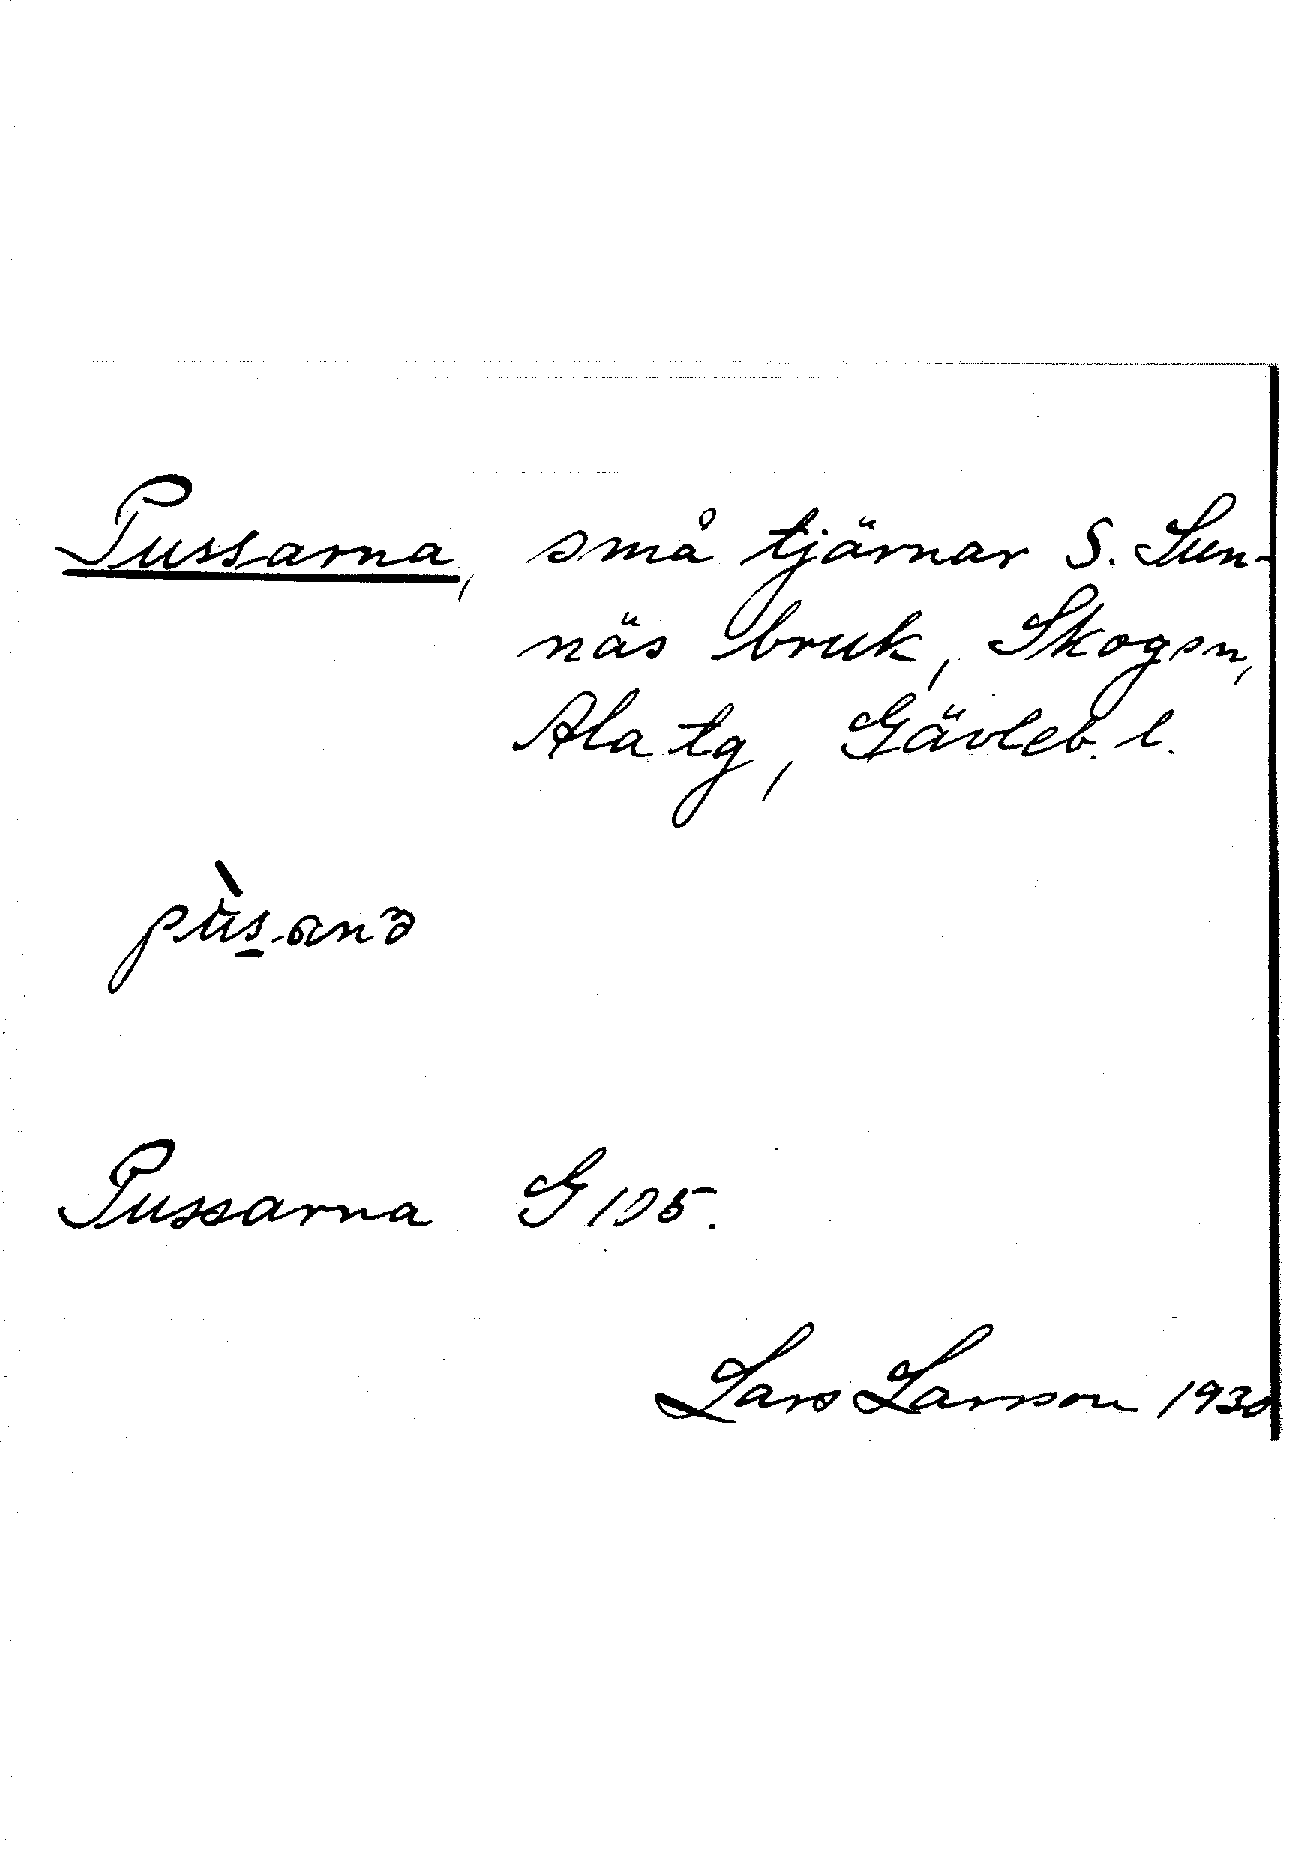 Pussarna, små tjärnar S. Sun-
näs bruk, Skogen,
Ala tg, Gävleb. l.
pùs̲anə
Pussarna G 105.
Lars Larsson 1930